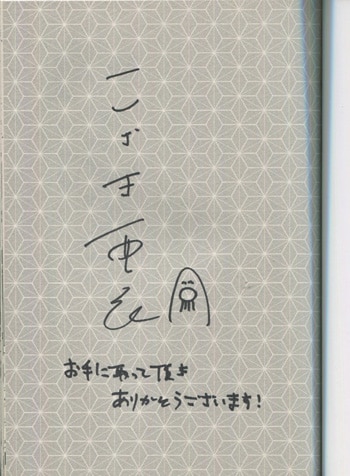 こざき亜衣
お手に取って頂き
ありがとうございます！